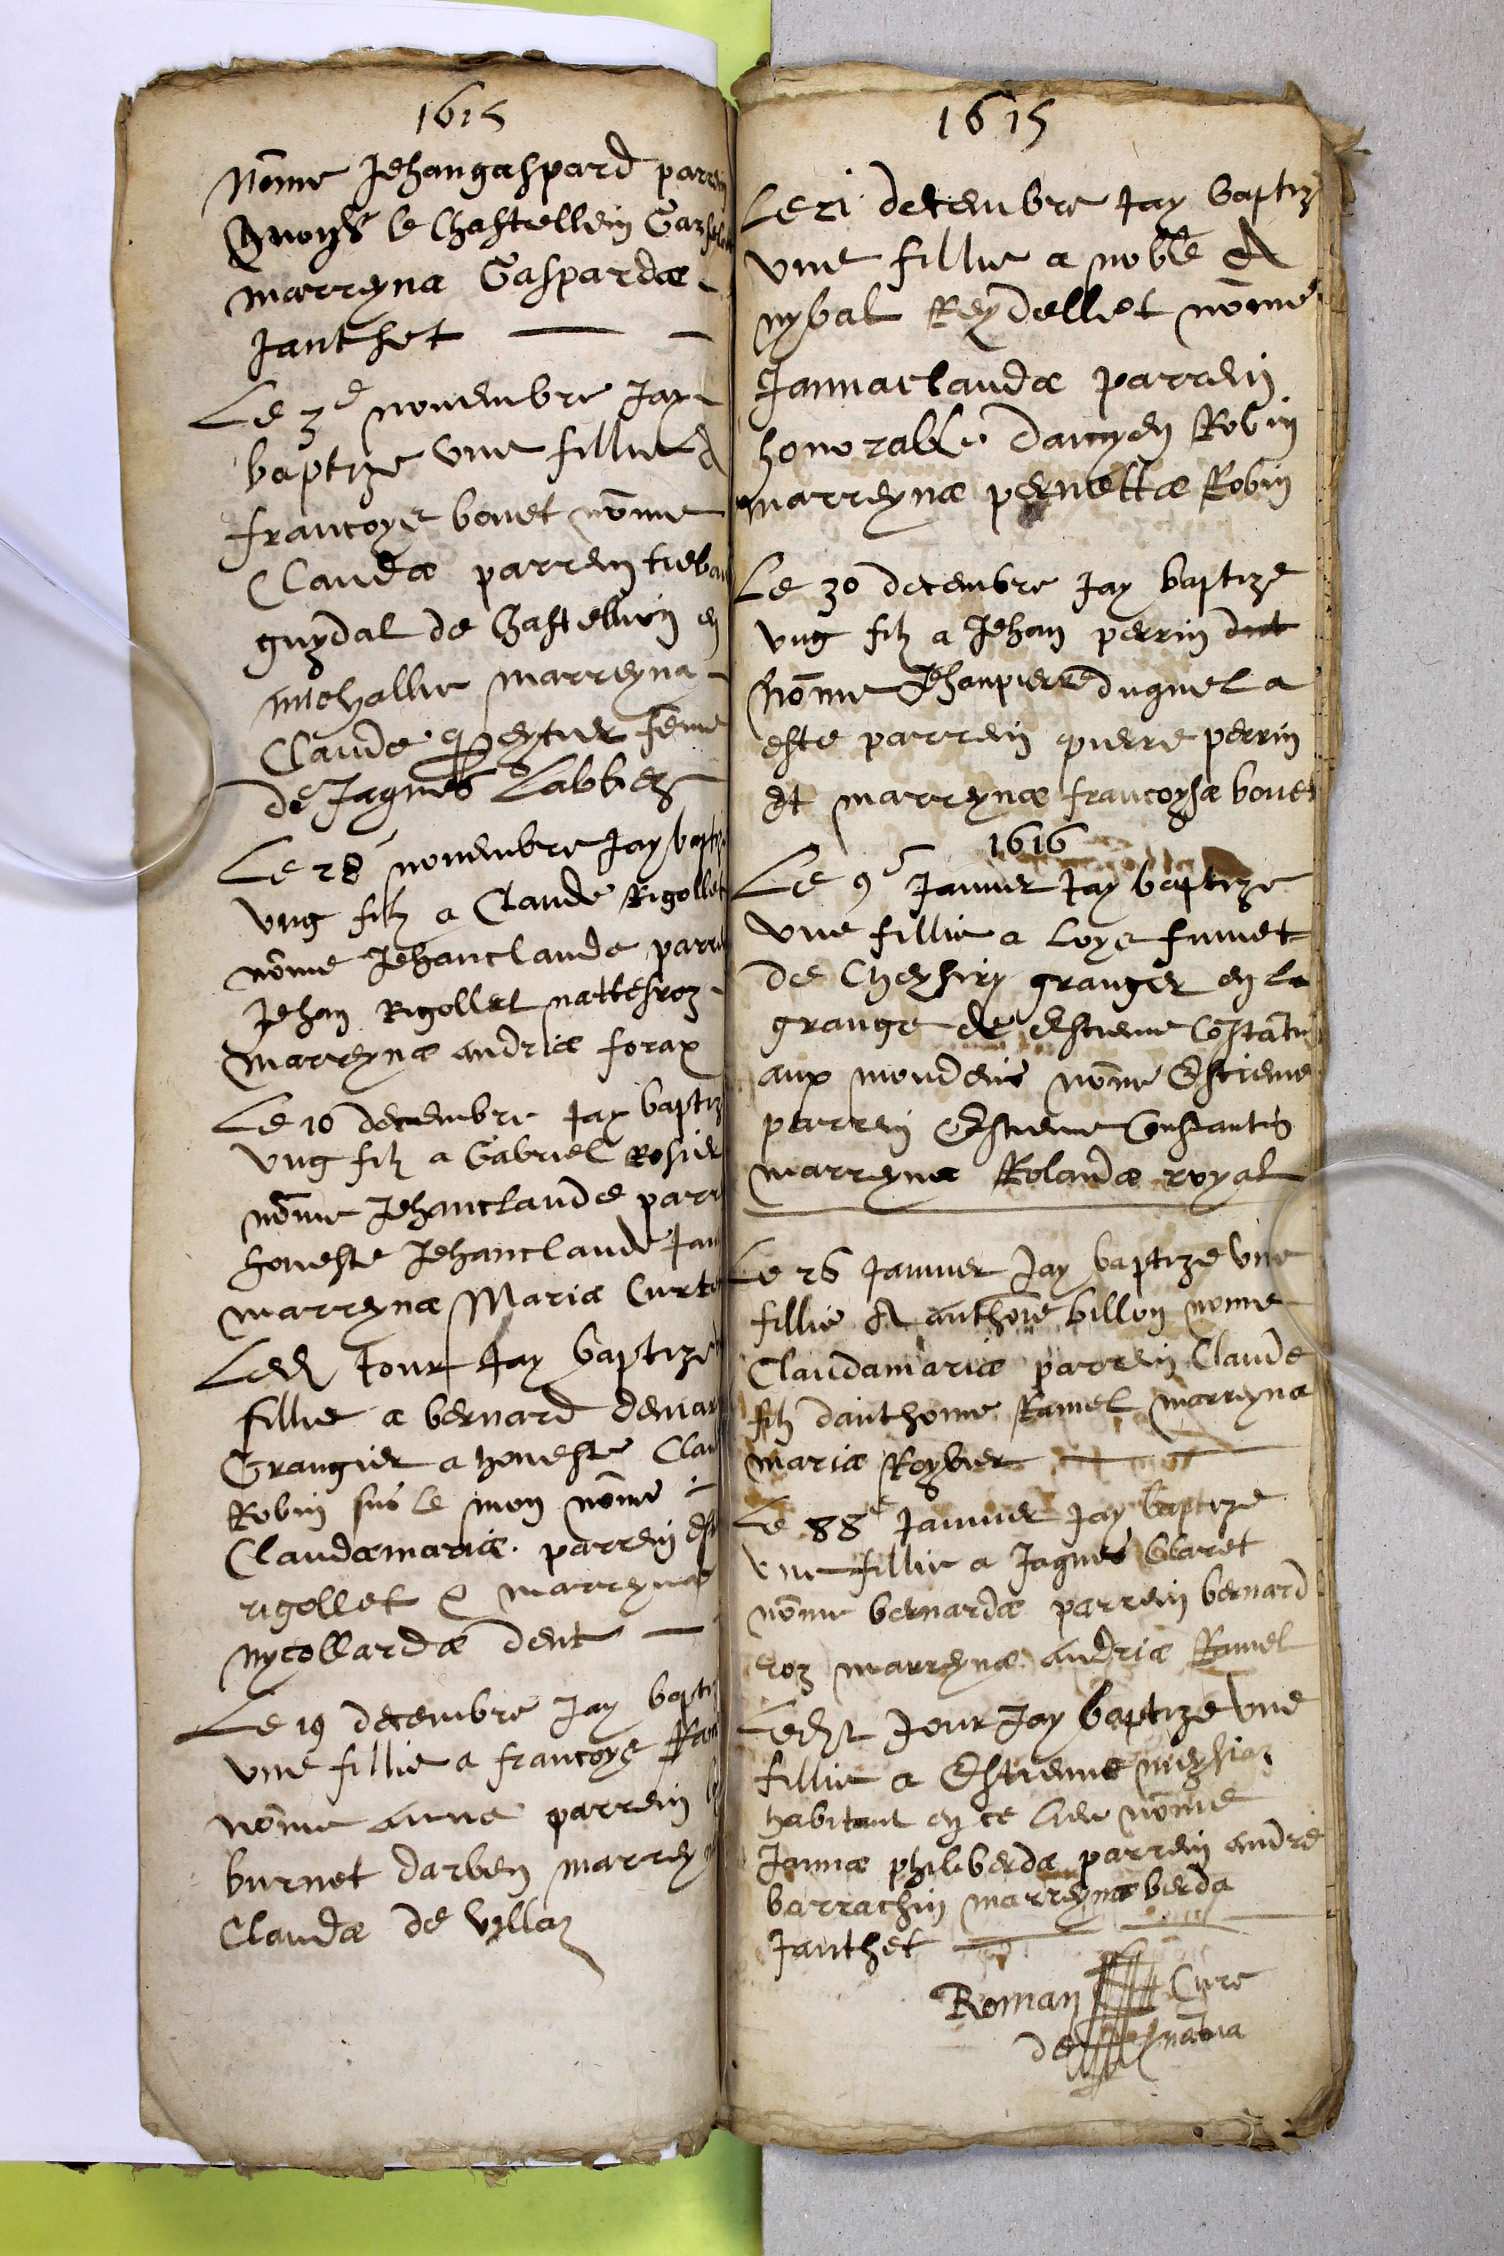 1615
nōme Jehangaspard parrein
le Chastellein
marreynæ Gaspardæ
Janthet
Le 3e novembre Jay
baptize une fillie A
francoys bonet nōme
Claudæ parrein
guydal de Chastellion en
michallie marreyna
Claude femme
de Jaques Labbez
Le 28 novembre Jay baptize
ung filz a Claude Rigollet
nōme Jehanclaude
Jehan Rigollet
marreynæ andriæ forax
Le 10 decembre Jay baptize
ung filz a Gabriel Rosier
nōme Jehanclaude
honeste Jehanclaude
marreynæ Mariæ
Led Jour Jay baptize
fillie a bernard
Grangier a honeste
Robin sus le mon nōme
Claudæmariæ parrein
rigollet & marreynæ
nycollardæ dent
Le 19 decembre Jay
une fillie a francoys
nōme anne parrein
burnet darben
Claudæ de Villaz
1615
Le 21 decembre Jay baptize
une fillie a noble A
nybal Reydellet nōme
Jannaclaudæ parrein
honorable damyen Robin
marreynæ pernettæ Robin
Le 30 decembre Jay baptize
ung filz a Jehan perrin
nōme Jhanpierre duquel a
este parrein pierre perrin
et marreynæ francoysæ bonet
1616
Le 9e Janvier Jay baptize
une fillie a loys fumet
de Cheysiry granger en la
grange de Estienne Costātin
aux mondeins nōme Estienne
parrein Estienne Constantin
marreynæ Rolandæ royal
Le 26 Janvier Jay baptize une
fillie A anthoine billon nome
Claudamariæ parrein Claude
filz danthoine Ramel marreyna
mariæ Roybier
Le 88e Janvier Jay baptize
une fillie a Jaques Claret
nōme bernardæ parrein bernard
roz marreynæ andriæ Ramel
Ledit Jour Jay baptize une
fillie a Estienne
habitant en ce lieu nōme
Jannæ philiberdæ parrein andre
barrachin marreynæ berda
Janthet
Roman Cure
de